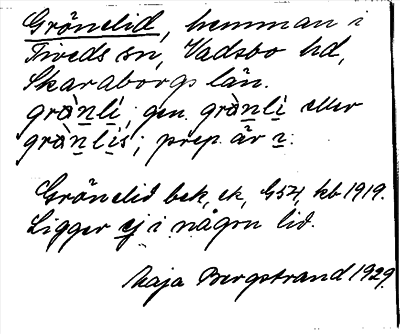 Grönelid, hemman i
Tiveds sn, Vadsbo hd,
Skaraborgs län.
grö̀nlí, gen. grö̀nlì eller
grö̀nlis; prep. är i.
Grönelid bek, ek, G54, kb 1919.
Ligger ej i någon lid.
Maja Bergstrand 1929.